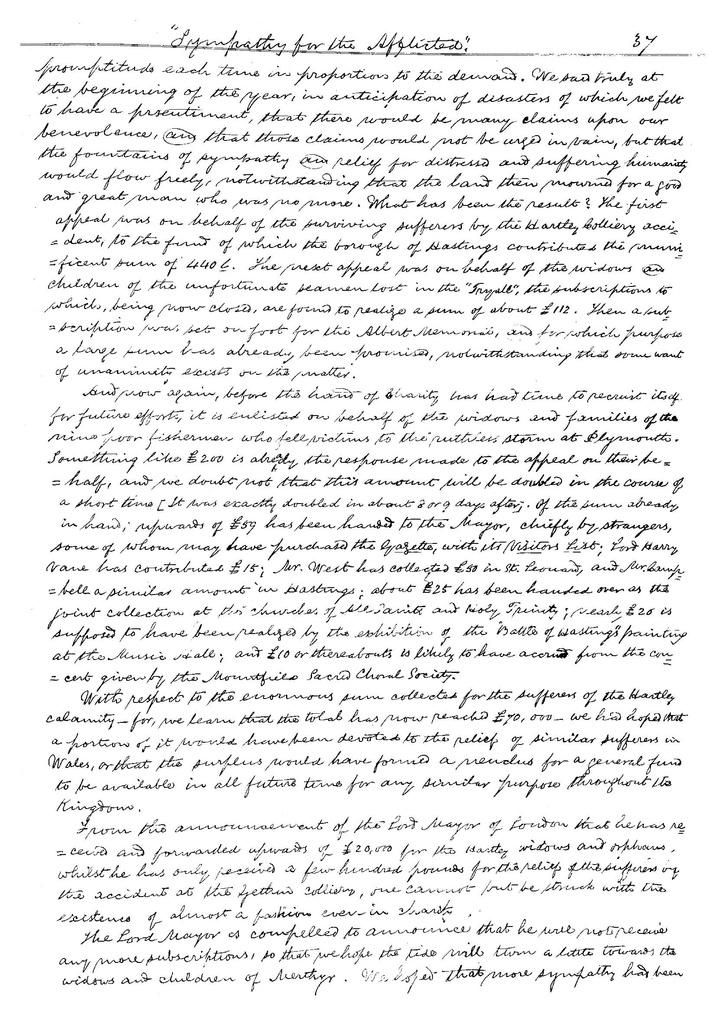 "Sympathy for the Afflicted". 37
promptitude each time in proportion to the demand. We said truly at
the beginning of the year, in anticipation of disasters of which we felt
to have a presentiment, that there would be many claims upon our
benevolence, an that those claims would not be urged in vain, but that
the fountains of sympathy an relief for distressed and suffering humanity
would flow freely, notwithstanding that the land then mourned for a good
and great man who was no more. What has been the result? The first
appeal was on behalf of the surviving sufferers by the Hartley Colliery acci-
=dent, to the fund of which the borough of Hastings contributed the muni-
=ficent sum of 440£. The next appeal was on behalf of the widows an
children of the unfortunate seamen lost in the "Tryall", the subscriptions to
which, being now closed, are found to realize a sum of about £112. Then a sub-
=scription was set on foot for the Albert Memorial, and for which purpose
a large sum has already been promised, notwithstanding that some want
of unanimity exists on the matter.
And now again, before the hand of Charity has had time to recruit itself
for future efforts, it is enlisted on behalf of the widows and families of the
nine poor fishermen who fell victims to the ruthless storm at Plymouth.
Something like £200 is already the response made to the appeal on their be=
=half, and we doubt not that this amount will be doubled in the course of
a short time [It was exactly doubled in about 8 or 9 days after]. Of the sum already
in hand, upwards of £59 has been handed to the Mayor, chiefly by strangers,
some of whom may have purchased the Gazette, with its Visitors List; Lord Harry
Vane has contributed £15; Mr. West has collected £50 in St. Leonard, and Mr. Camp=
=bell a similar amount in Hastings; about £25 has been handed over as the
joint collection at the churches of All Saints and Holy Trinity; nearly £20 is
supposed to have been realized by the exhibition of the "Battle of Hastings" painting
at the Music Hall; and £10 or thereabouts is likely to have accrued from the con-
=cert given by the Mountfield Sacred Choral Society.
With respect to the enormous sum collected for the sufferers of the Hartley
calamity — for, we learn that the total has now reached £70,000 — we had hoped that
a portion of it would have been devoted to the relief of similar sufferers in
Wales, or that the surplus would have formed a neuclus for a general fund
to be available in all future time for any similar purpose throughout the
Kingdom.
From the announcement of the Lord Mayor of London that he has re=
=ceived and forwarded upwards of £20,000 for the Hartley widows and orphans,
whilst he has only received a few hundred pounds for the relief of the sufferers by
the accident at the Gethin colliery, one cannot but be struck with the
existence of almost a fashion even in Charity.
The Lord Mayor is compelled to announce that he will not receive
any more subscriptions, so that we hope the tide will turn a little towards the
widows and children of Merthyr. We hoped that more sympathy had been